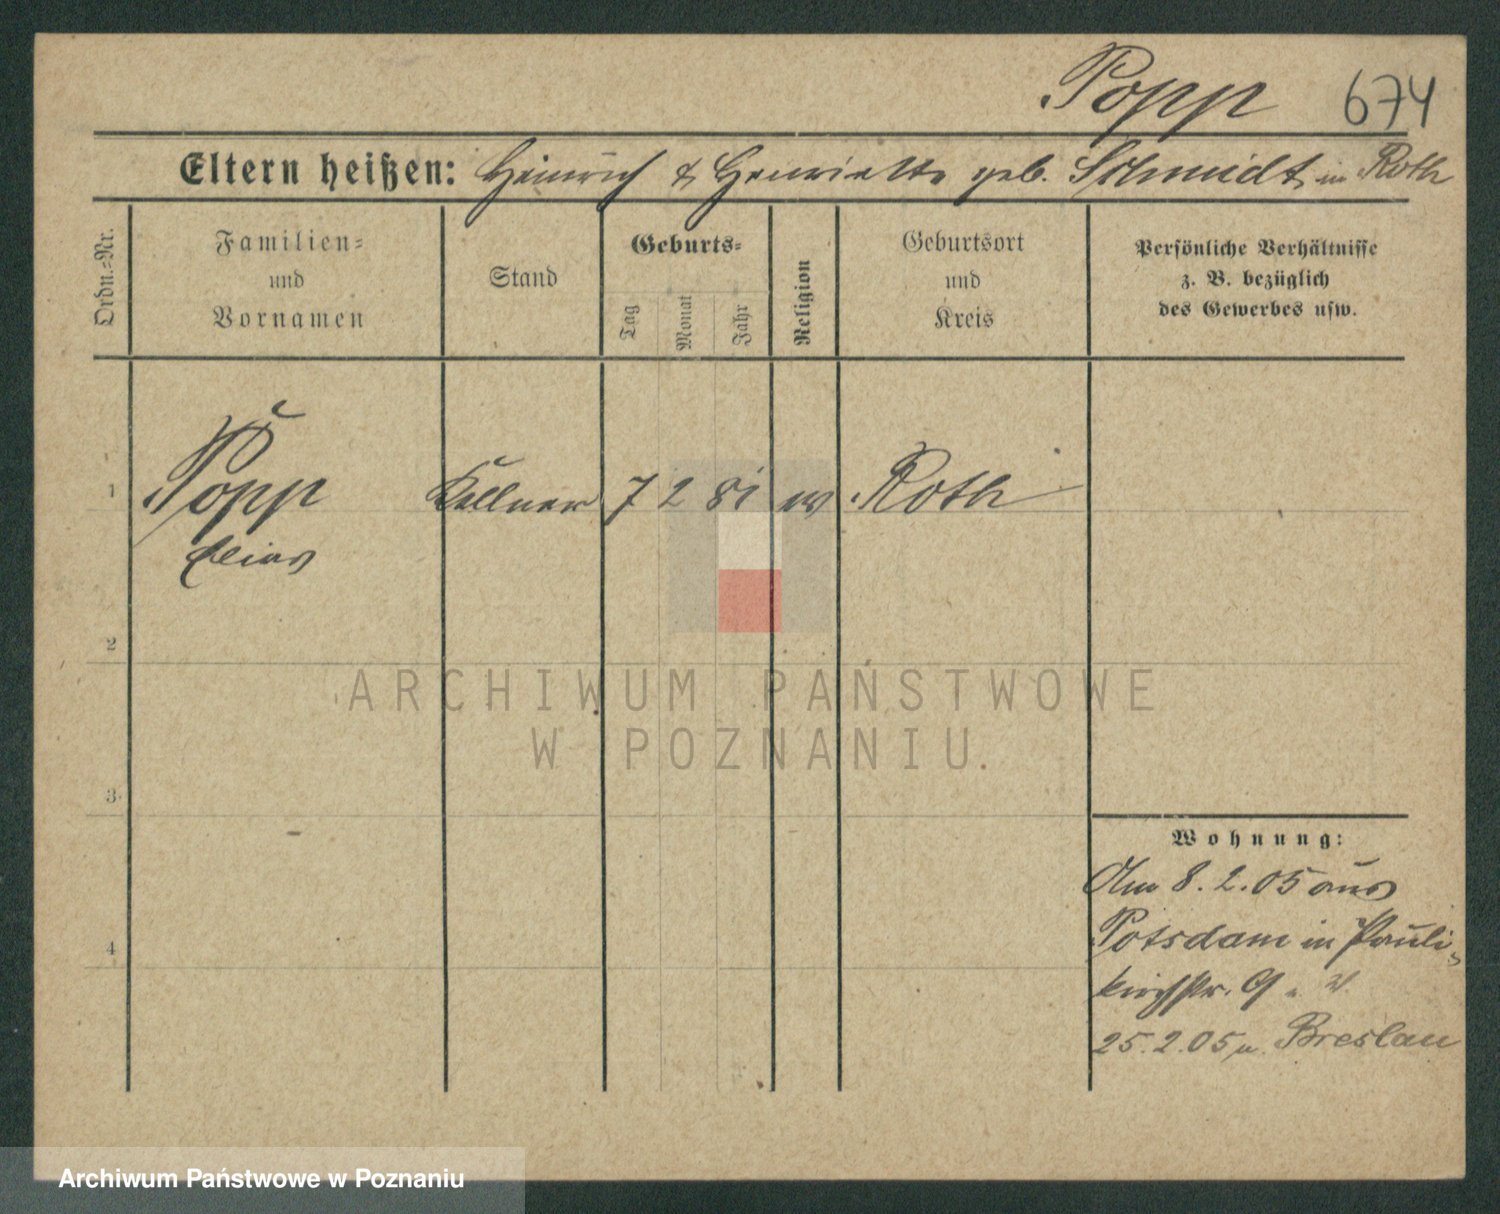 Popp 674
Eltern heißen: Heinrich & Henriette geb. Schmidt in Roth
Ordn.=Nr.
Familien=
und
Vornamen
Stand
Geburts=
Tag
Monat
Jahr
Religion
Geburtsort
und
Kreis
Persönliche Verhältnisse
z. B. bezüglich
des Gewerbes usw.
1 Popp Kellner 7 2 81 ev Roth
2
ARCHIWUM PAŃSTWOWE
W POZNANIU.
3
Wohnung:
Am 8.2.05 aus
4
Potsdam in Pauli=
kirchstr. 9
25.2.05 n. Breslau
Archiwum Państwowe w Poznaniu